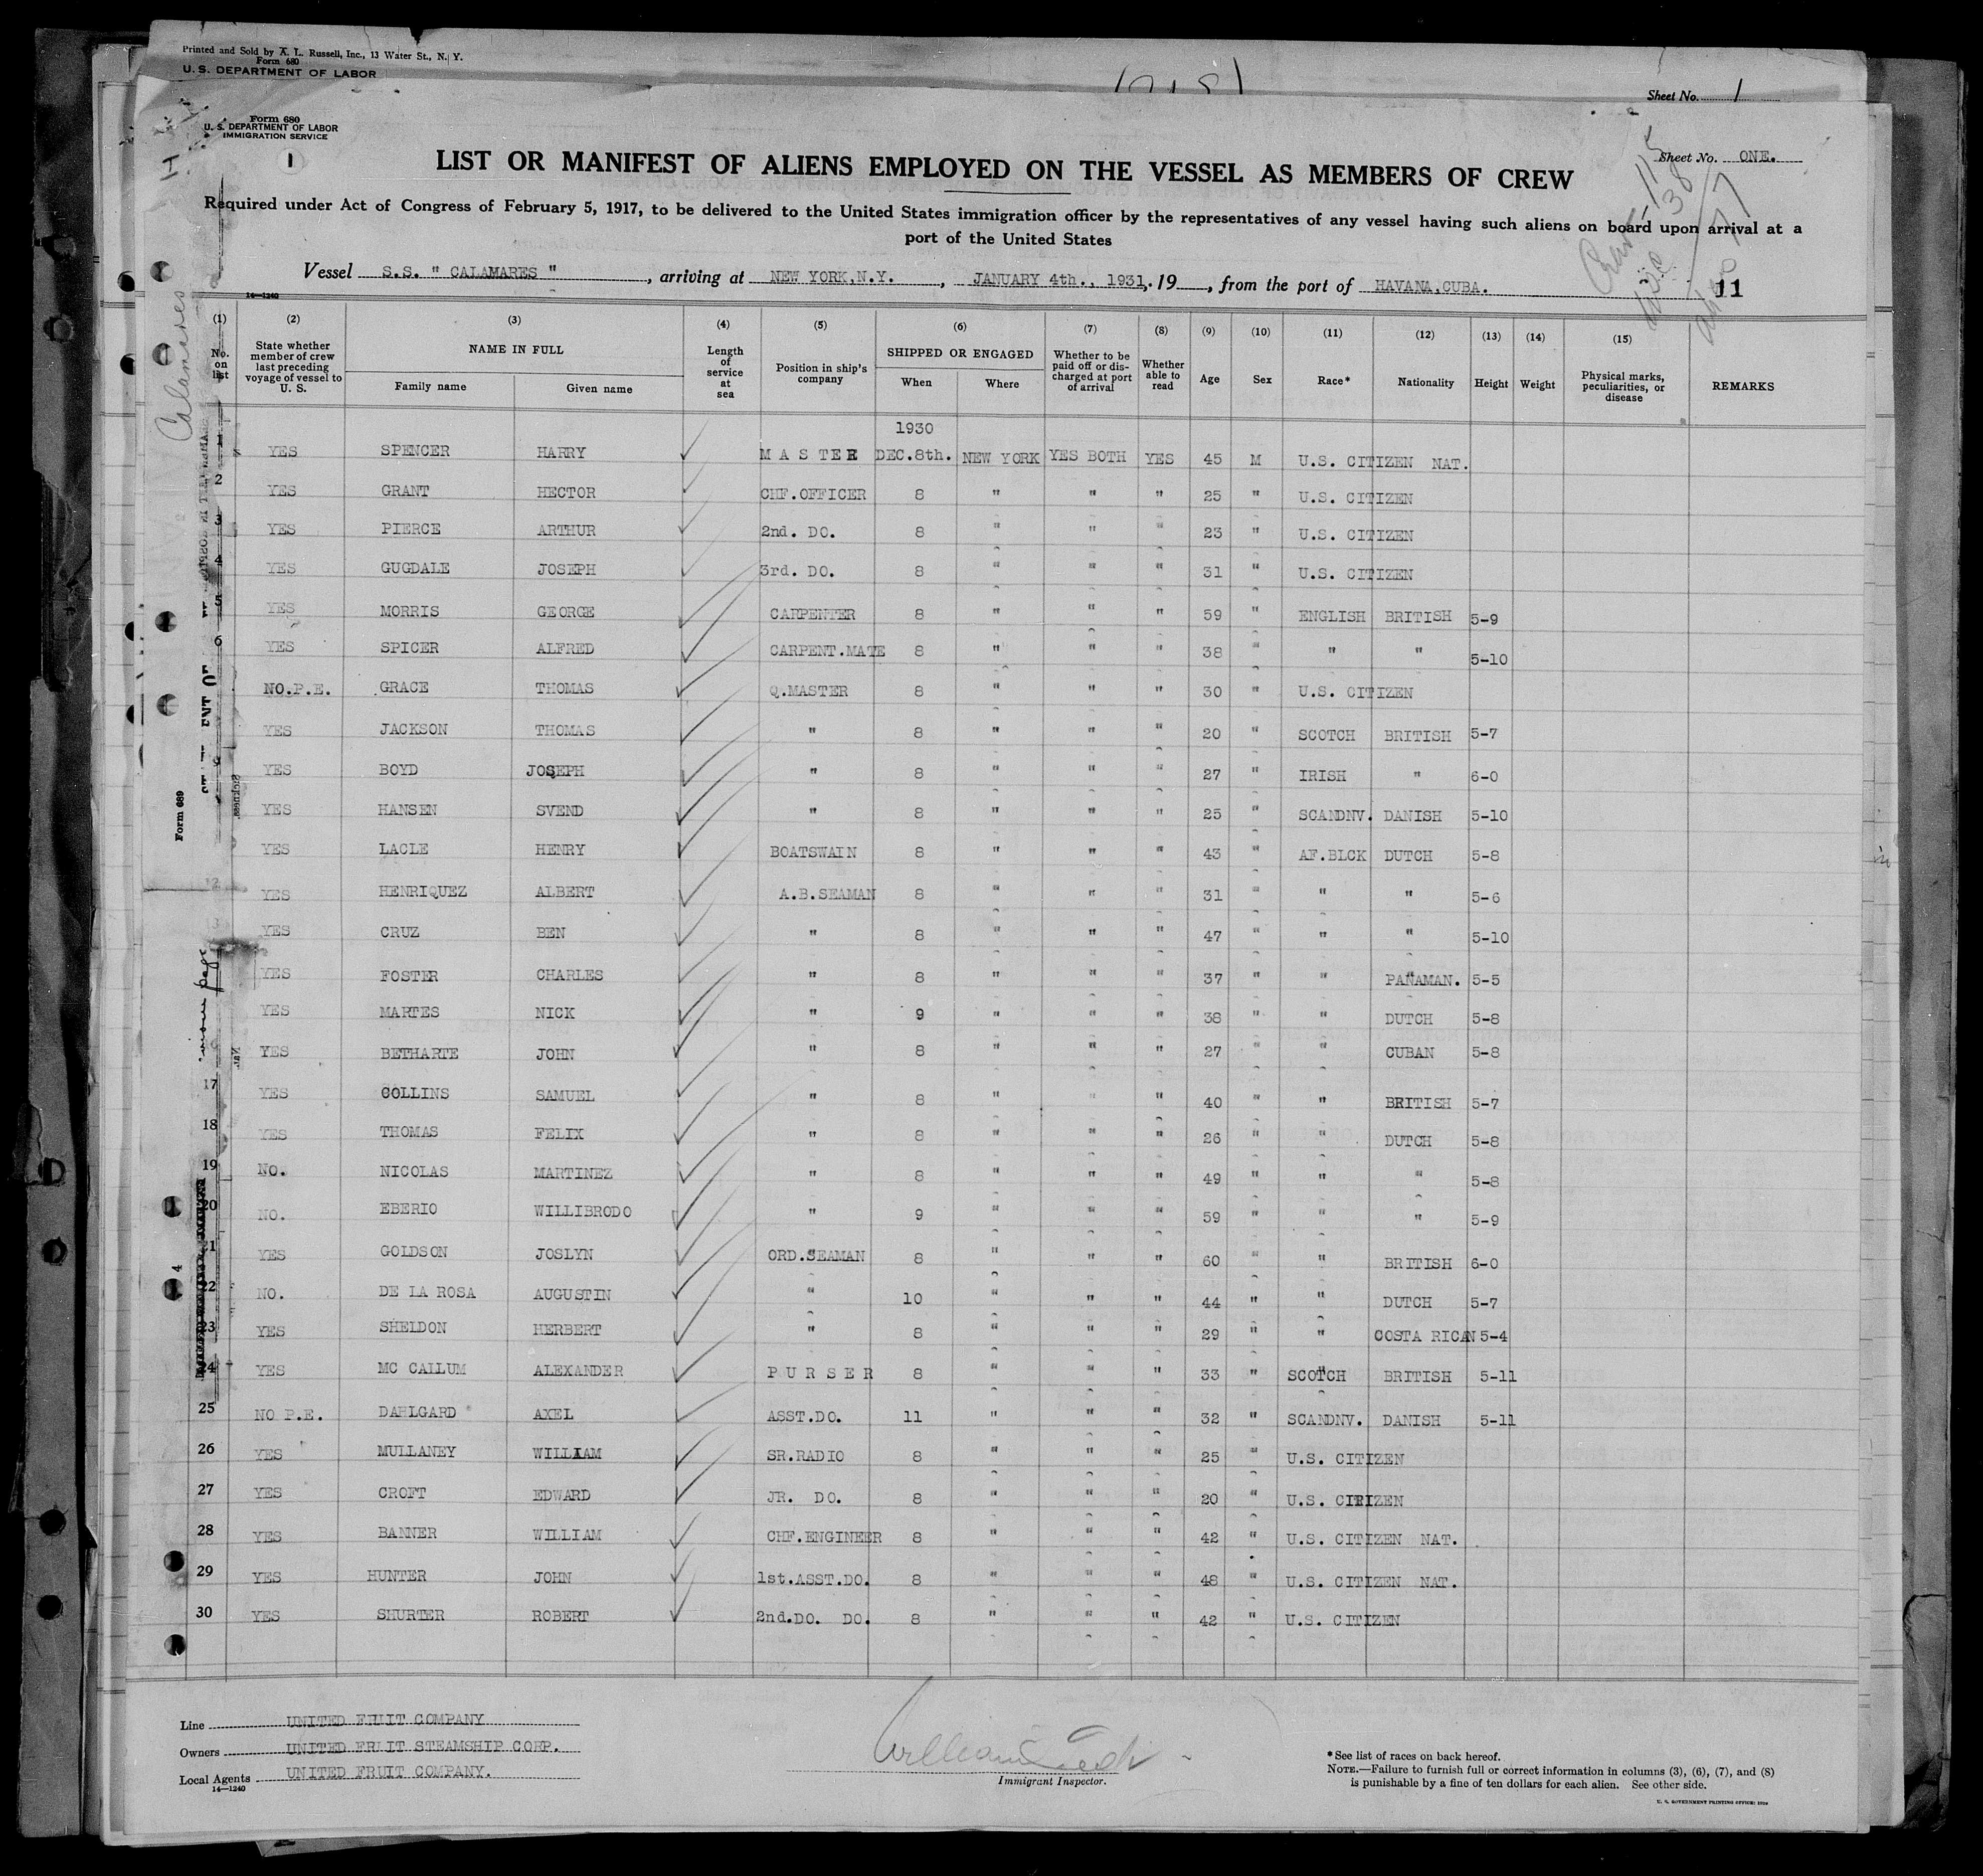 Printed and Sold by A. L. Russell, Inc., 13 Water St., N. Y.
Form 680
U. S. DEPARTMENT OF LABOR
Sheet No. 1
Form 680
U. S. DEPARTMENT OF LABOR
IMMIGRATION SERVICE
1
Sheet No. ONE.
LIST OR MANIFEST OF ALIENS EMPLOYED ON THE VESSEL AS MEMBERS OF CREW
Required under Act of Congress of February 5, 1917, to be delivered to the United States immigration officer by the representatives of any vessel having such aliens on board upon arrival at a
port of the United States
Vessel S.S. " CALAMARES ", arriving at NEW YORK,N.Y., JANUARY 4th., 1931, 19, from the port of HAVANA,CUBA. 11
14—1240
Calamares
Form 689
(1) No. on list (2) State whether member of crew last preceding voyage of vessel to U. S. (3) NAME IN FULL Family name Given name (4) Length of service at sea (5) Position in ship's company (6) SHIPPED OR ENGAGED When Where (7) Whether to be paid off or discharged at port of arrival (8) Whether able to read (9) Age (10) Sex (11) Race* (12) Nationality (13) Height (14) Weight (15) Physical marks, peculiarities, or disease REMARKS
1930
1 YES SPENCER HARRY M A S T E R DEC.8th. NEW YORK YES BOTH YES 45 M U.S. CITIZEN NAT.
2 YES GRANT HECTOR CHF.OFFICER 8 " " " 25 " U.S. CITIZEN
3 YES PIERCE ARTHUR 2nd. DO. 8 " " " 23 " U.S. CITIZEN
4 YES GUGDALE JOSEPH 3rd. DO. 8 " " " 31 " U.S. CITIZEN
5 YES MORRIS GEORGE CARPENTER 8 " " " 59 " ENGLISH BRITISH 5-9
6 YES SPICER ALFRED CARPENT.MATE 8 " " " 38 " " " 5-10
NO.P.E. GRACE THOMAS Q.MASTER 8 " " " 30 " U.S. CITIZEN
YES JACKSON THOMAS " 8 " " " 20 " SCOTCH BRITISH 5-7
9 YES BOYD JOSEPH " 8 " " " 27 " IRISH " 6-0
YES HANSEN SVEND " 8 " " " 25 " SCANDNV. DANISH 5-10
YES LACLE HENRY BOATSWAIN 8 " " " 43 " AF.BLCK DUTCH 5-8
12 YES HENRIQUEZ ALBERT A.B.SEAMAN 8 " " " 31 " " " 5-6
13 YES CRUZ BEN " 8 " " " 47 " " " 5-10
YES FOSTER CHARLES " 8 " " " 37 " " PANAMAN. 5-5
YES MARTES NICK " 9 " " " 38 " " DUTCH 5-8
YES BETHARTE JOHN " 8 " " " 27 " " CUBAN 5-8
17 YES COLLINS SAMUEL " 8 " " " 40 " " BRITISH 5-7
18 YES THOMAS FELIX " 8 " " " 26 " " DUTCH 5-8
19 NO. NICOLAS MARTINEZ " 8 " " " 49 " " " 5-8
20 NO. EBERIO WILLIBRODO " 9 " " " 59 " " " 5-9
21 YES GOLDSON JOSLYN ORD.SEAMAN 8 " " " 60 " " BRITISH 6-0
22 NO. DE LA ROSA AUGUSTIN " 10 " " " 44 " " DUTCH 5-7
23 YES SHELDON HERBERT " 8 " " " 29 " " COSTA RICAN 5-4
24 YES MC CALLUM ALEXANDER P U R S E R 8 " " " 33 " SCOTCH BRITISH 5-11
25 NO P.E. DAHLGARD AXEL ASST.DO. 11 " " " 32 " SCANDNV. DANISH 5-11
26 YES MULLANEY WILLIAM SR.RADIO 8 " " " 25 " U.S. CITIZEN
27 YES CROFT EDWARD JR. DO. 8 " " " 20 " U.S. CITIZEN
28 YES BANNER WILLIAM CHF.ENGINEER 8 " " " 42 " U.S. CITIZEN NAT.
29 YES HUNTER JOHN 1st.ASST.DO. 8 " " " 48 " U.S. CITIZEN NAT.
30 YES SHURTER ROBERT 2nd.DO. DO. 8 " " " 42 " U.S. CITIZEN
Line UNITED FRUIT COMPANY
Owners UNITED FRUIT STEAMSHIP CORP.
Local Agents UNITED FRUIT COMPANY.
14—1240
William
Immigrant Inspector.
*See list of races on back hereof.
NOTE.—Failure to furnish full or correct information in columns (3), (6), (7), and (8)
is punishable by a fine of ten dollars for each alien. See other side.
U. S. GOVERNMENT PRINTING OFFICE: 1929